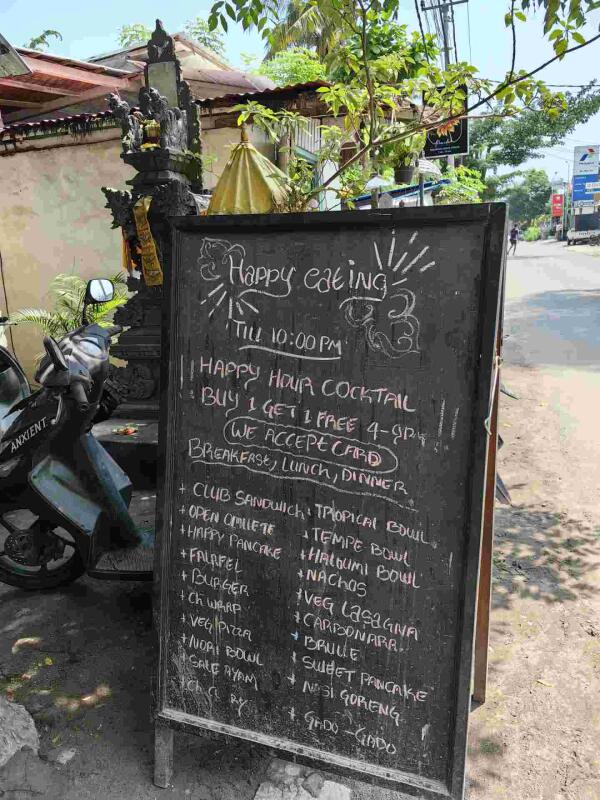 Happy eating
TILL 10:00 PM
HAPPY HOUR COCKTAIL
BUY 1 GET 1 FREE 4-9PM
WE ACCEPT CARD
BREAKFAST, LUNCH, DINNER
+ CLUB SANDWICH
+ OPEN OMLLETE
+ HAPPY PANCAKE
+ FALAFEL
+ BURGER
+ CH. WRAP
+ VEG PIZZA
+ NORI BOWL
+ SATE AYAM
+ TROPICAL BOWL
+ TEMPE BOWL
+ HALOUMI BOWL
+ NACHOS
+ VEG LASAGNA
+ CARBONARA
+ BRULE
+ SWEET PANCAKE
+ NASI GORENG
+ GADO-GADO
ANXIENT